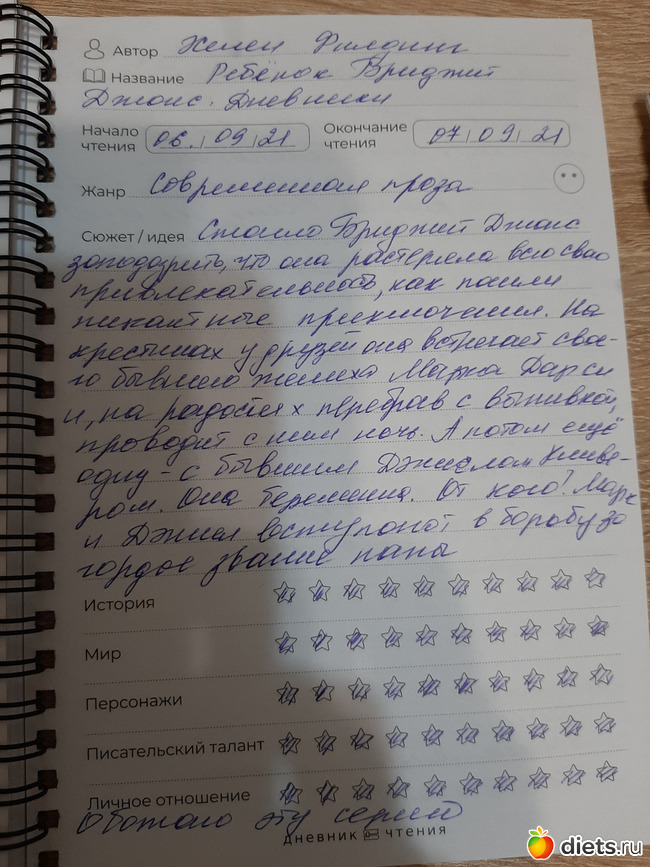 Автор Хелен Филдинг
Название Ребёнок Бриджит
Джонс. Дневники
Начало чтения 06. 09 21 Окончание чтения 07 09 21
Жанр Современная проза
Сюжет / идея Стоило Бриджит Джонс
заподозрить, что она растеряла всю свою
привлекательность, как пошли
пикантные приключения. На
крестинах у друзей она встречает свое-
го бывшего жениха Марка Дарси
и, на радостях перебрав с выпивкой,
проводит с ним ночь. А потом ещё
одну - с бывшим Дэниелом Кливе-
ром. Она беременна. От кого? Марк
и Дэниел вступают в борьбу за
гордое звание папы
История
Мир
Персонажи
Писательский талант
Личное отношение
Обожаю эту серию
дневник чтения
diets.ru